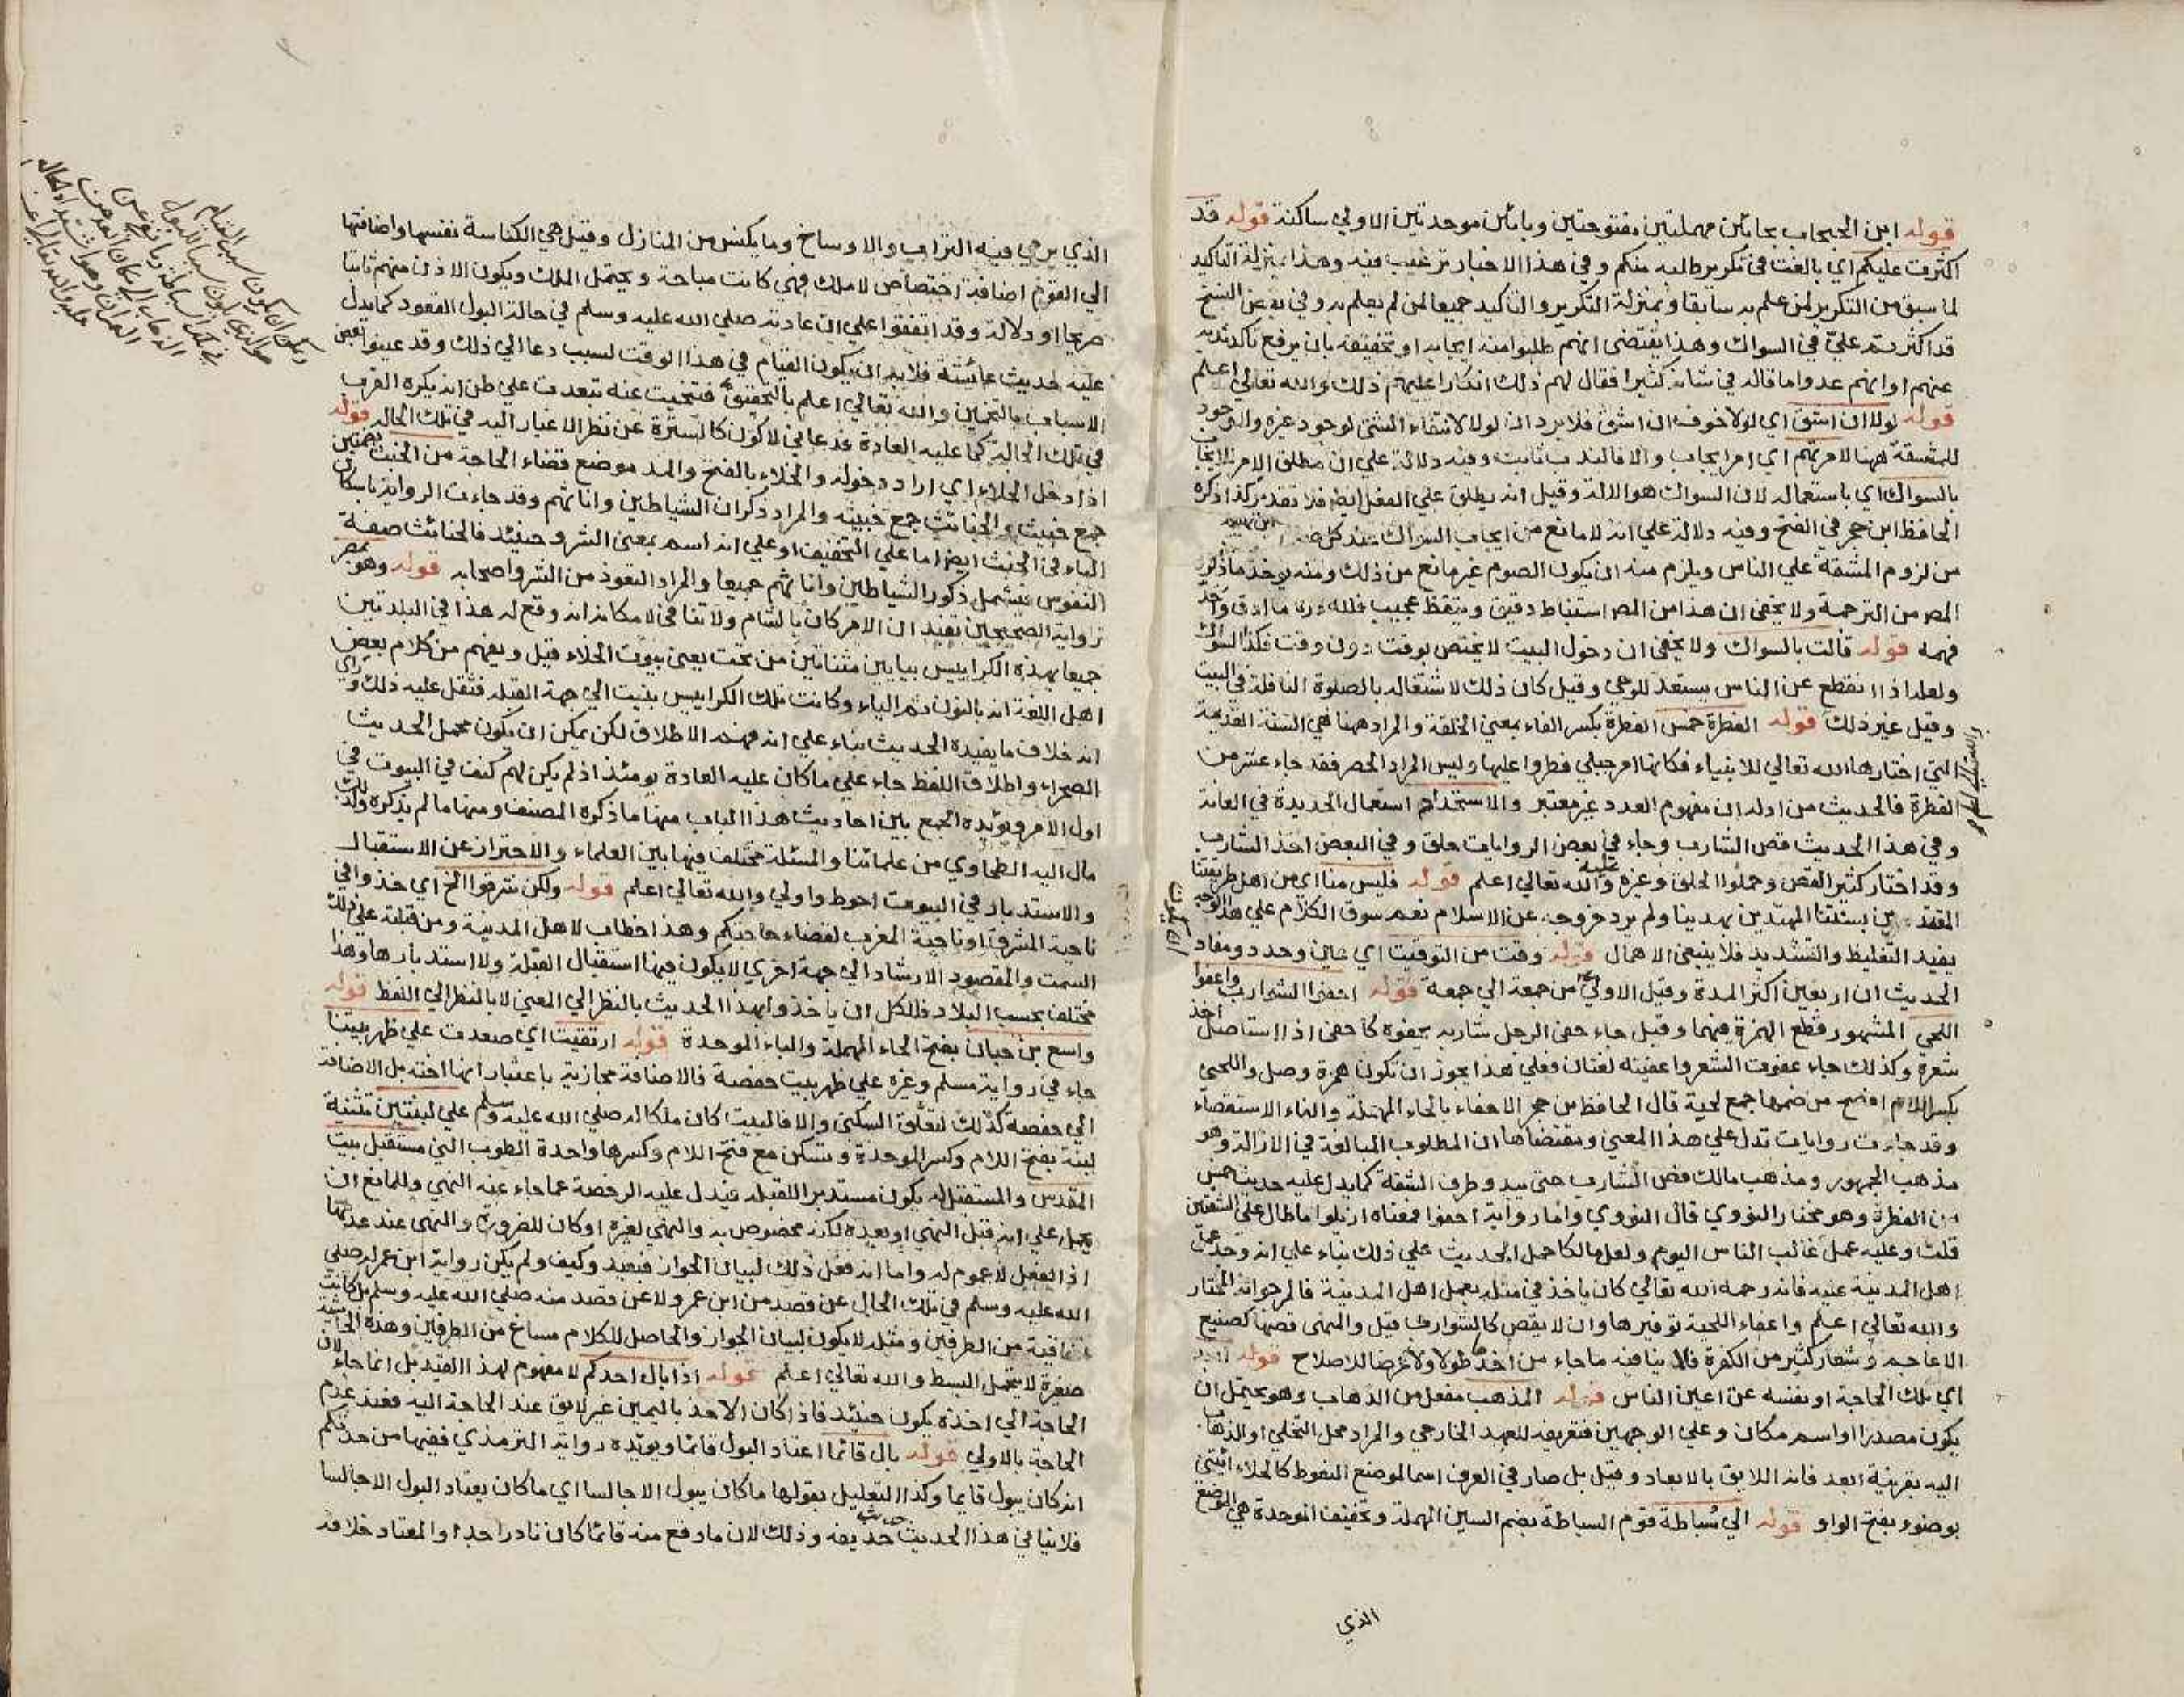 قوله ابن الحبحاب بحائين مهملتين مفتوحتين وبائين موحدتين الاولي ساكنة قوله قد
اكثرت عليكم اي بالغت في تكرير طلبه منكم وفي هذا الاخبار ترغيب فيه وهذا بمنزلة التاكيد
لما سبق من التكرير لمن علم به سابقا وبمنزلة التكرير والتاكيد جميعا لمن لم يعلم به وفي بعض النسخ
قد اكثرتم عليّ في السواك وهذا يقتضي انهم طلبوا منه ايجابه او تخفيفه بان يرفع تاكد ندبه
عنهم او انهم عدوا ما قاله في شانه كثيرا فقال لهم ذلك انكارا عليهم ذلك والله تعالي اعلم
قوله لولا ان اشق اي لولا خوف ان اشق فلا يرد ان لولا لانتفاء الشئ لوجود غيره والوجود
للمشقة ههنا لامرتهم اي امر ايجاب والا فالندب ثابت وفيه دلالة علي ان مطلق الامر للايجاب
بالسواك اي باستعماله لان السواك هو الالة وقيل انه يطلق علي الفعل ايضا فلا تقدير كذا ذكره
الحافظ ابن حجر في الفتح وفيه دلالة علي انه لا مانع من ايجاب السواك عند كل
من لزوم المشقة علي الناس ويلزم منه ان يكون الصوم غير مانع من ذلك ومنه يوخذ ما ذكره
المص من الترجمة ولا يخفي ان هذا من المص استنباط دقيق وتيقظ عجيب فلله دره ما ادق واحد
فهمه قوله قالت بالسواك ولا يخفي ان دخول البيت لا يختص بوقت دون وقت فكذا السواك
ولعله اذا انقطع عن الناس يستعد للوحي وقيل كان ذلك لاشتغاله بالصلوة النافلة في البيت
وقيل غير ذلك قوله الفطرة خمس الفطرة بكسر الفاء بمعني الخلقة والمراد ههنا هي السنة القديمة
التي اختارها الله تعالي للانبياء فكانها امر جبلي فطروا عليها وليس المراد الحصر فقد جاء عشر من
الفطرة فالحديث من ادلة ان مفهوم العدد غير معتبر والاستحداد استعمال الحديدة في العانة
وفي هذا الحديث قص الشارب وجاء في بعض الروايات حلق وفي البعض اخذ الشارب
وقد اختار كثير القص وحملوا الحلق وغيره عليه والله تعالي اعلم قوله فليس منا اي من اهل طريقتنا
المقتدين بسنتنا المهتدين بهدينا ولم يرد خروجه عن الاسلام نعم سوق الكلام علي هذا الوجه
يفيد التغليظ والتشديد فلا ينبغي الاهمال قوله وقت من التوقيت اي عين وحدد ومفاد
الحديث ان اربعين اكثر المدة وقيل الاولي من جمعة الي جمعة قوله احفوا الشوارب واعفوا
اللحي المشهور قطع الهمزة فيهما وقيل جاء حفي الرجل شاربه يحفوه كاحفي اذا استاصل اخذ
شعره وكذلك جاء عفوت الشعر واعفيته لغتان فعلي هذا يجوز ان تكون همزة وصل واللحي
بكسر اللام افصح من ضمها جمع لحية قال الحافظ بن حجر الاحفاء بالحاء المهملة والفاء الاستقصاء
وقد جاءت روايات تدل علي هذا المعني ومقتضاها ان المطلوب المبالغة في الازالة وهو
مذهب الجمهور ومذهب مالك قص الشارب حتي يبدو طرف الشفة كما يدل عليه حديث خمس
من الفطرة وهو مختار النووي قال النووي واما رواية احفوا فمعناه ازيلوا ما طال علي الشفتين
قلت وعليه عمل غالب الناس اليوم ولعل مالكا حمل الحديث علي ذلك بناء علي انه وجد عمل
اهل المدينة عليه فانه رحمه الله تعالي كان ياخذ في مثله بعمل اهل المدينة فالمرجو انه المختار
والله تعالي اعلم واعفاء اللحية توفيرها وان لا يقص كالشوارب قيل والمنهي قصها كصنيع
الاعاجم وشعار كثير من الكفرة فلا ينافيه ما جاء من اخذها طولا وعرضا للاصلاح قوله ابعد
اي تلك الحاجة او نفسه عن اعين الناس قوله المذهب مفعل من الذهاب وهو يحتمل ان
يكون مصدرا او اسم مكان وعلي الوجهين فتعريفه للعهد الخارجي والمراد محل التخلي او الذهاب
اليه بقرينة ابعد فانه اللايق بالابعاد وقيل بل صار في العرف اسما لموضع التغوط كالخلاء ائتني
بوضوء بفتح الواو قوله الي سُباطة قوم السباطة بضم السين المهملة وتخفيف الموحدة هي الموضع
الذي
الذي يرمي فيه التراب والاوساخ وما يكنس من المنازل وقيل هي الكناسة نفسها واضافتها
الي القوم اضافة اختصاص لا ملك فهي كانت مباحة ويحتمل الملك ويكون الاذن منهم ثابتا
صريحا او دلالة وقد اتفقوا علي ان عادته صلي الله عليه وسلم في حالة البول القعود كما يدل
عليه حديث عائشة فلا بد ان يكون القيام في هذا الوقت لسبب دعا الي ذلك وقد عينوا بعض
الاسباب بالتخمين والله تعالي اعلم بالتحقيق فتنحيت عنه تبعدت علي ظن انه يكره القرب
في تلك الحالة كما عليه العادة فدعاني لاكون كالسترة عن نظر الاغيار اليه في تلك الحالة قوله
اذا دخل الخلاء اي اراد دخوله والخلاء بالفتح والمد موضع قضاء الحاجة من الخبث بضمتين
جمع خبيث والخبائث جمع خبيثة والمراد ذكران الشياطين واناثهم وقد جاءت الرواية باسكان
الباء في الخبث ايضا اما علي التخفيف او علي انه اسم بمعني الشر وحينئذ فالخبائث صفة
النفوس فتشمل ذكور الشياطين واناثهم جميعا والمراد التعوذ من الشر واصحابه قوله وهو بمصر
رواية الصحيحين تفيد ان الامر كان بالشام ولا تنافي لامكان انه وقع له هذا في البلدتين
جميعا بهذه الكراييس بيايين مثناتين من تحت يعني بيوت الخلاء قيل ويفهم من كلام بعض
اهل اللغة انه بالنون ثم الياء وكانت تلك الكراييس بنيت الي جهة القبلة فثقل عليه ذلك وراي
انه خلاف ما يفيده الحديث بناء علي انه فهم الاطلاق لكن يمكن ان يكون محمل الحديث
الصحراء واطلاق اللفظ جاء علي ما كان عليه العادة يومئذ اذ لم يكن لهم كنف في البيوت في
اول الامر ويؤيده الجمع بين احاديث هذا الباب منها ما ذكره المصنف ومنها ما لم يذكره ولذلك
مال اليه الطحاوي من علمائنا والمسئلة مختلف فيها بين العلماء والاحتراز عن الاستقبال
والاستدبار في البيوت احوط واولي والله تعالي اعلم قوله ولكن شرقوا الخ اي خذوا في
ناحية المشرق او ناحية المغرب لقضاء حاجتكم وهذا خطاب لاهل المدينة ومن قبلته علي ذلك
السمت والمقصود الارشاد الي جهة اخري لا يكون فيها استقبال القبلة ولا استدبارها وهذا
مختلف بحسب البلاد فللكل ان ياخذوا بهذا الحديث بالنظر الي المعني لا بالنظر الي اللفظ قوله
واسع بن حبان بفتح الحاء المهملة والباء الموحدة قوله ارتقيت اي صعدت علي ظهر بيتنا
جاء في رواية مسلم وغيره علي ظهر بيت حفصة فالاضافة مجازية باعتبار انها اخته بل الاضافة
الي حفصة كذلك لتعلق السكني والا فالبيت كان ملكا له صلي الله عليه وسلم علي لبنتين تثنية
لبنة بفتح اللام وكسر الموحدة وتسكن مع فتح اللام وكسرها واحدة الطوب التي مستقبل بيت
المقدس والمستقبل له يكون مستدبر القبلة فيدل عليه الرخصة عما جاء عنه النهي وللمانع ان
يحمل علي انه قبل النهي او بعده لكنه مخصوص به والنهي لغيره او كان للضرورة والنهي عند عدمها
اذ الفعل لا عموم له واما انه فعل ذلك لبيان الجواز فبعيد وكيف ولم يكن رواية ابن عمر له صلي
الله عليه وسلم في تلك الحال عن قصد من ابن عمر ولا عن قصد منه صلي الله عليه وسلم بل كانت
اتفاقية من الطرفين ومثله لا يكون لبيان الجواز والحاصل للكلام مساغ من الطرفين وهذه الحاشية
صغيرة لا تتحمل البسط والله تعالي اعلم قوله اذا بال احدكم لا مفهوم لهذا القيد بل انما جاء لان
الحاجة الي اخذه يكون حينئذ فاذا كان الاخذ باليمين غير لايق عند الحاجة اليه فعند عدم
الحاجة بالاولي قوله بال قائما اعتاد البول قائما ويؤيده رواية الترمذي ففيها من حدثكم
انه كان يبول قايما وكذا التعليل بقولها ما كان يبول الا جالسا اي ما كان يعتاد البول الا جالسا
فلا ينافي هذا الحديث حديث حذيفه وذلك لان ما وقع منه قائما كان نادرا جدا والمعتاد خلافه